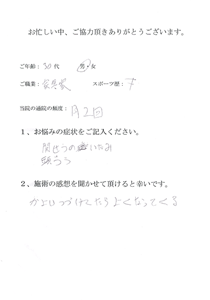 お忙しい中、ご協力頂きありがとうございます。
ご年齢：30代 男・女
ご職業： スポーツ歴：
当院の通院の頻度： 月2回
1、お悩みの症状をご記入ください。
関せつのいたみ
2、施術の感想を聞かせて頂けると幸いです。
かよいつづけてたらよくなってくる